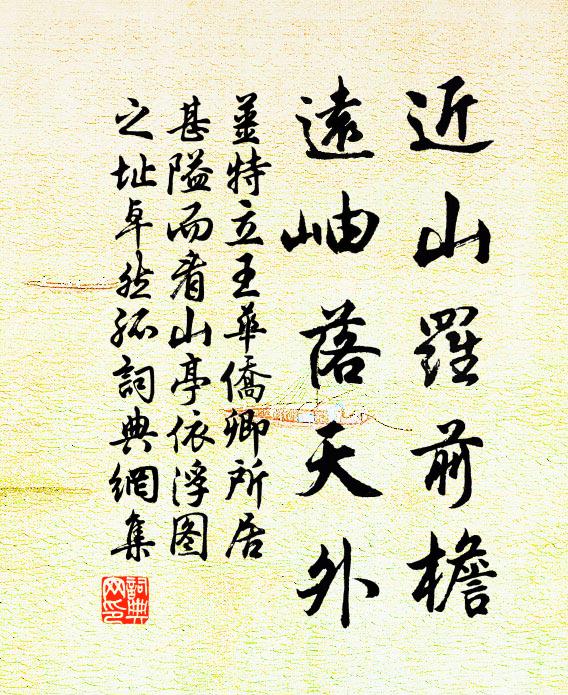 近山羅前檐
遠岫落天外
姜特立王華僑卿所居
甚隘而看山亭依浮图
之址卓然孤詞典網集
詞典
网印